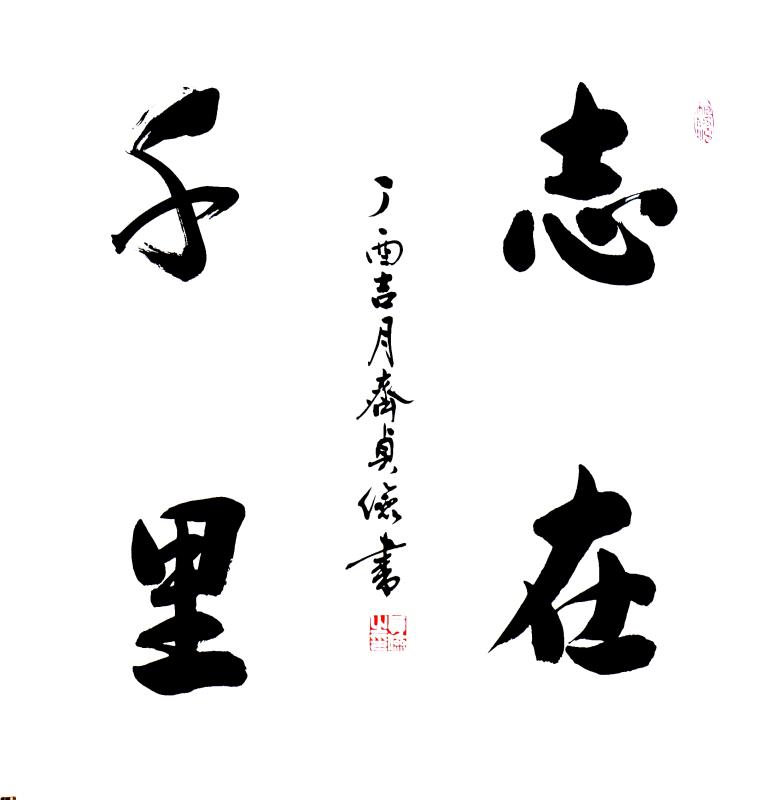 志在
千里
丁酉吉月齊貞儉書